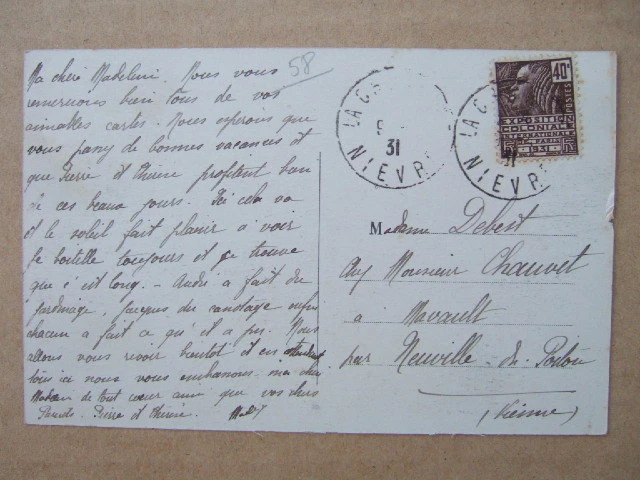 58
Ma chère Madeleine, Nous vous
remercions bien tous de vos
aimables cartes. Nous espérons que
vous passez de bonnes vacances et
que Pierre et Thérèse profitent bien
de ces beaux jours. Ici cela va
et le soleil fait plaisir à voir
toujours et je trouve
que c'est long. - André a fait du
jardinage, Jacques du canotage enfin
chacun a fait ce qu'il a pu. Nous
allons vous revoir bientôt et en attendant
tous ici nous vous embrassons ma chère
de tout cœur ainsi que vos chers
Parents. Pierre et Thérèse.
LA C
31
NIEVR
LA C
31
NIEVR
40c
POSTES
EXPOSITION
COLONIALE
INTERNATIONALE
PARIS
1931
Madame Debest
Aux Monsieur Chauvet
à Mavault
par Neuville-du-Poitou
(Vienne)